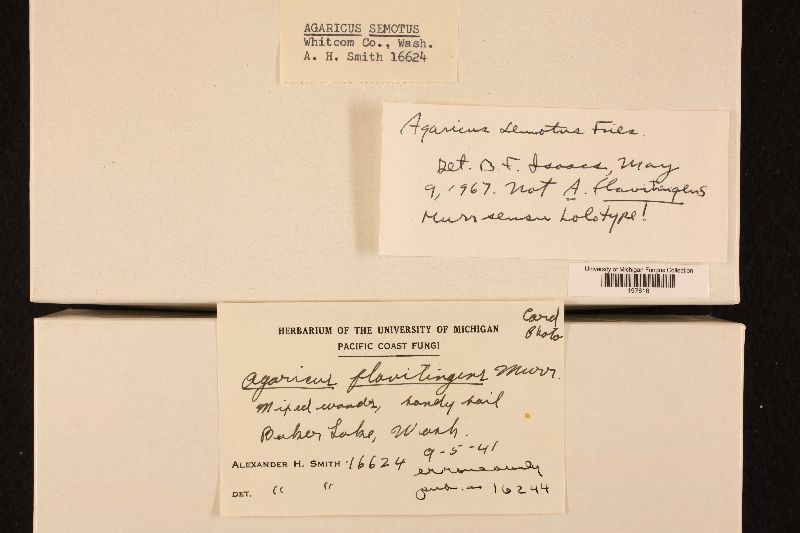 AGARICUS SEMOTUS
Whitcom Co., Wash.
A. H. Smith 16624
Agaricus semotus Fries.
Det. B. F. Isaacs, May
9, 1967. Not A. flavitingens
Murr sensu holotype!
University of Michigan Fungus Collection
Card
Photo
HERBARIUM OF THE UNIVERSITY OF MICHIGAN
PACIFIC COAST FUNGI
Agaricus flavitingens Murr.
Mixed woods, sandy soil
Baker Lake, Wash.
9-5-41
ALEXANDER H. SMITH 16624
erroneously
DET. " "
pub. as 16244